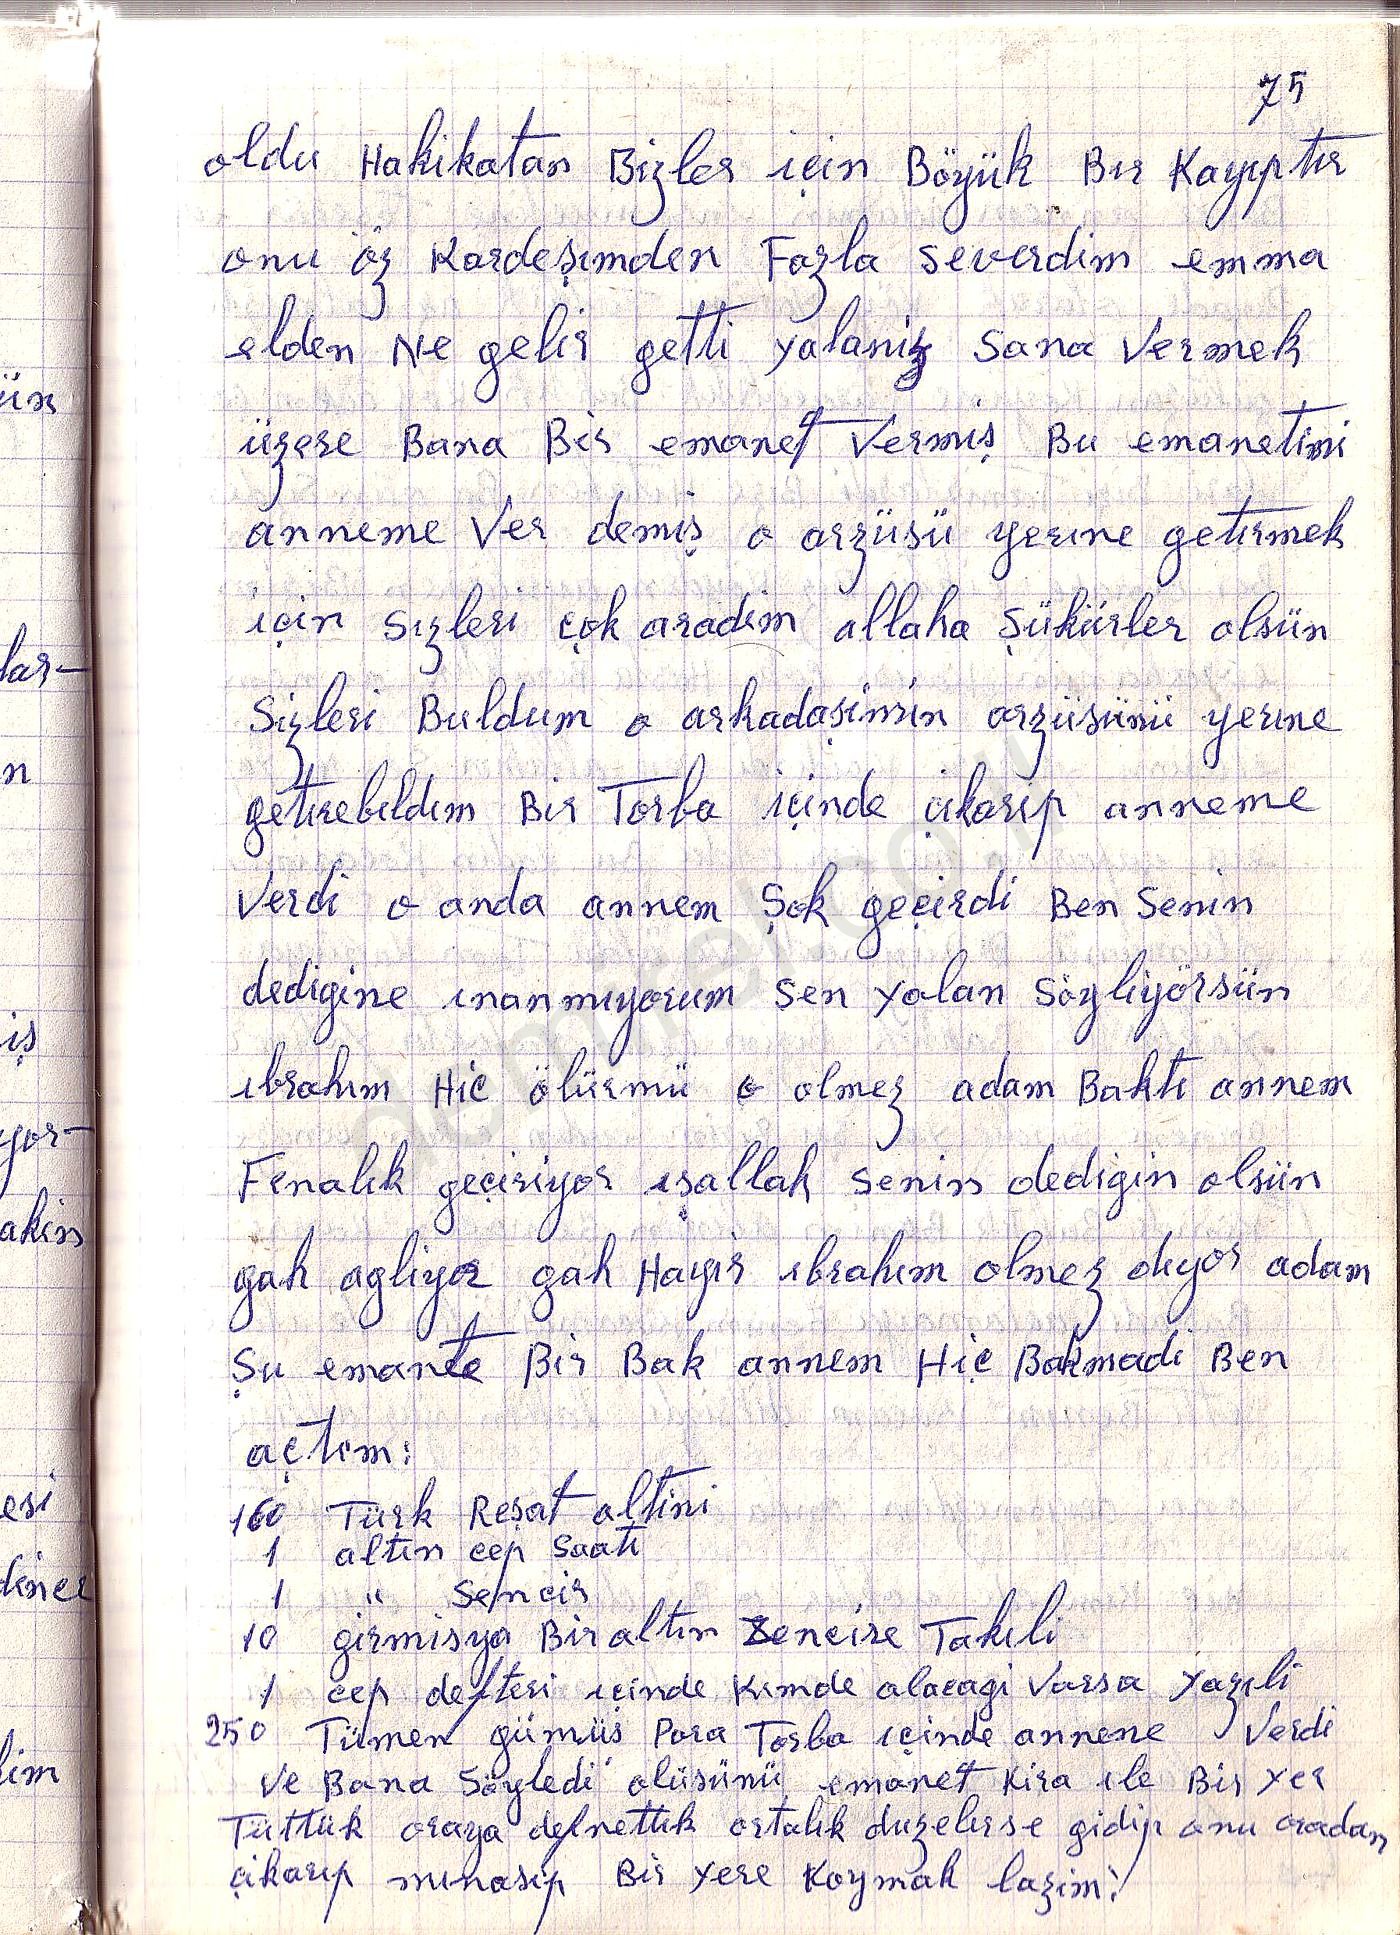 75
oldu Hakikatan Bizler için Böyük Bır Kayıptır
onu öz Kardeşımden Fazla Severdim emma
elden Ne gelir getti yalaniz Sana Vermek
üzere Bana Bir emanet Vermiş Bu emanetimi
anneme Ver demiş o arzüsü yerıne getırmek
için Sızleri çok aradim allaha Şükürler olsün
Sizleri Buldum o arkadaşimin arzüsünü yerıne
getırebıldım Bir Torba içinde çikarip anneme
Verdi o anda annem Şok geçirdi Ben Senin
dedigine ınanmıyorum Sen yalan Söyliyörsün
ıbrahım Hiç ölürmü o olmez adam Baktı annem
Fenalık geçiriyor ışallah Senin dedigin olsün
gah agliyor gah Hayir ıbrahım olmez dıyor adam
Şu emanete Bir Bak annem Hiç Bakmadi Ben
açtım:
160 Türk Reşat altini
1 altın cep Saatı
1 " Sencir
10 girmisya Bir altın Zencire Takıli
1 cep defteri içinde Kımde alacagi Varsa Yazıli
250 Tümen gümüş Para Torba ıçinde annene Verdi
Ve Bana Söyledi olüsünü emanet Kira ıle Bir Yer
Tüttük oraya defnettık ortalık duzelırse gidip onu oradan
çikarıp mınasıp Bir Yere Koymak lazim: